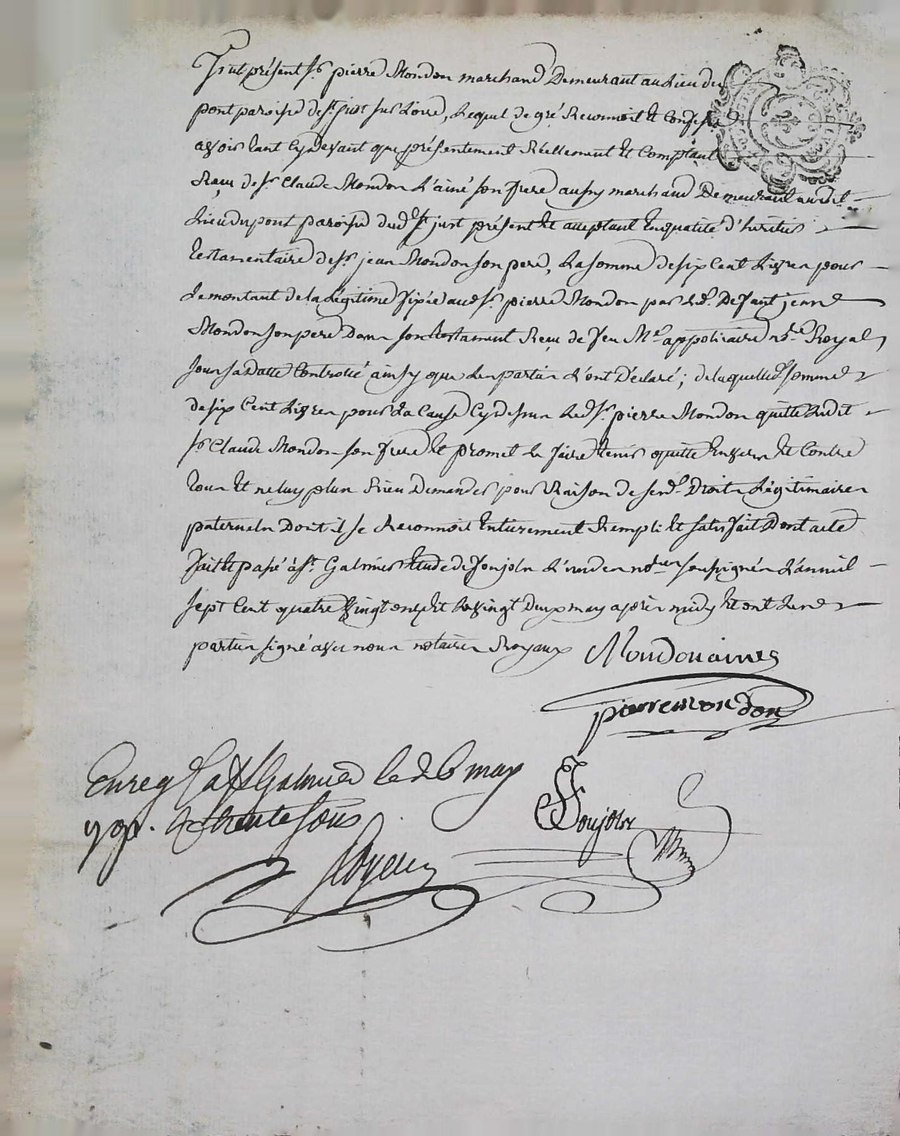 Fut présent sr pierre Mondon marchand Demeurant au Lieu du
pont paroisse de st just sur Loire, Lequel de gré Reconnoit et Confesse
avoir tant Cydevant que présentement Réellement et Comptant
Reçu de sr Claude Mondon L'ainé son frere aussy marchand Demeurant audit
Lieu du pont paroisse dud st just présent et acceptant En qualité d'heritier
testamentaire de sr jean Mondon son pere, La somme de six Cent Livres pour
Le montant de la Légitime fixée aud sr pierre Mondon par Led. Defunt jean
Mondon son pere Dans son testament Reçu de feu Me appoticaire nre Royal
sous sa Datte Controllé ainsy que Les parties L'ont Déclaré; de laquelle somme
de six Cent Livres pour La Cause Cydessus Led sr pierre Mondon quitte Ledit
sr Claude Mondon son frere et promet Le faire tenir quitte Envers et Contre
tous et ne luy plus Rien Demander pour Raison de sesd. Droits Légitimaires
paternels Dont il se Reconnoit Entierement Rempli et satisfait Dont acte
fait et passé à st Galmier Etude de Soujols L'un des nores soussignés L'an mil
sept Cent quatre vingt onze et Le vingt Deux may après midy Et ont Les
parties signé avec nous notaires Royaux Mondon ainé
pierre mondon
Enreg à st Galmier le 26 may
1791. R trente sous
Soujols